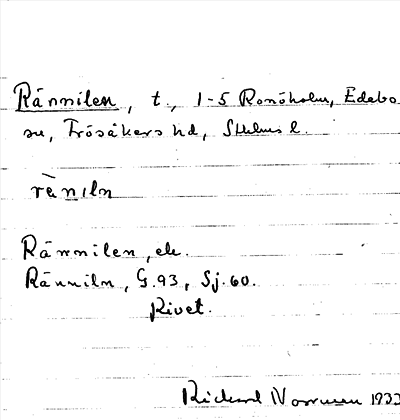 Rännilen, t., 1-5 Ronöholm, Edebo
sn, Frösåkers hd, Sthlms l.
rä̀nıln
Rännilen, ek.
Ränniln, G.93, Sj.60.
Rivet.
Rickard 1933